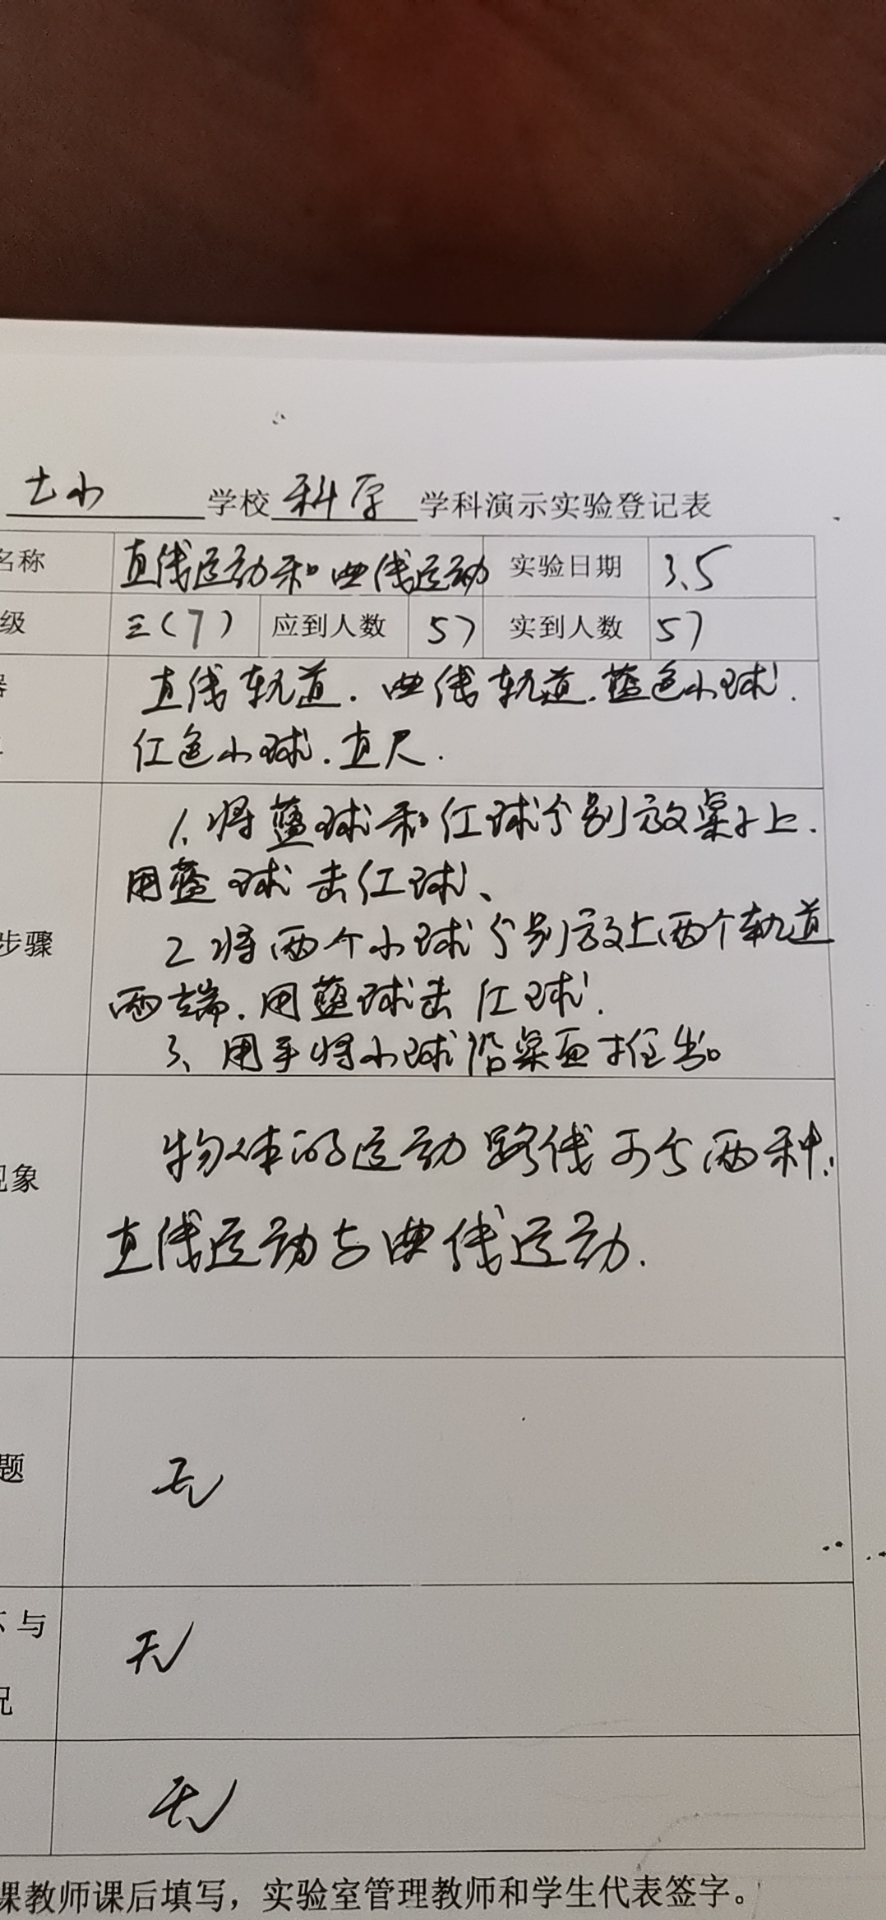 七小 学校 科学 学科演示实验登记表
名称 直线运动和曲线运动 实验日期 3.5
级 三(7) 应到人数 57 实到人数 57
直线轨道.曲线轨道.蓝色小球.
红色小球.直尺.
1、将蓝球和红球分别放桌子上.
用蓝球击红球、
步骤 2、将两个小球分别放上两个轨道
两端.用蓝球击红球.
3、用手将小球沿桌面推出。
现象 物体的运动路线可分两种:
直线运动与曲线运动.
题 无
与 无
况
无
课教师课后填写，实验室管理教师和学生代表签字。